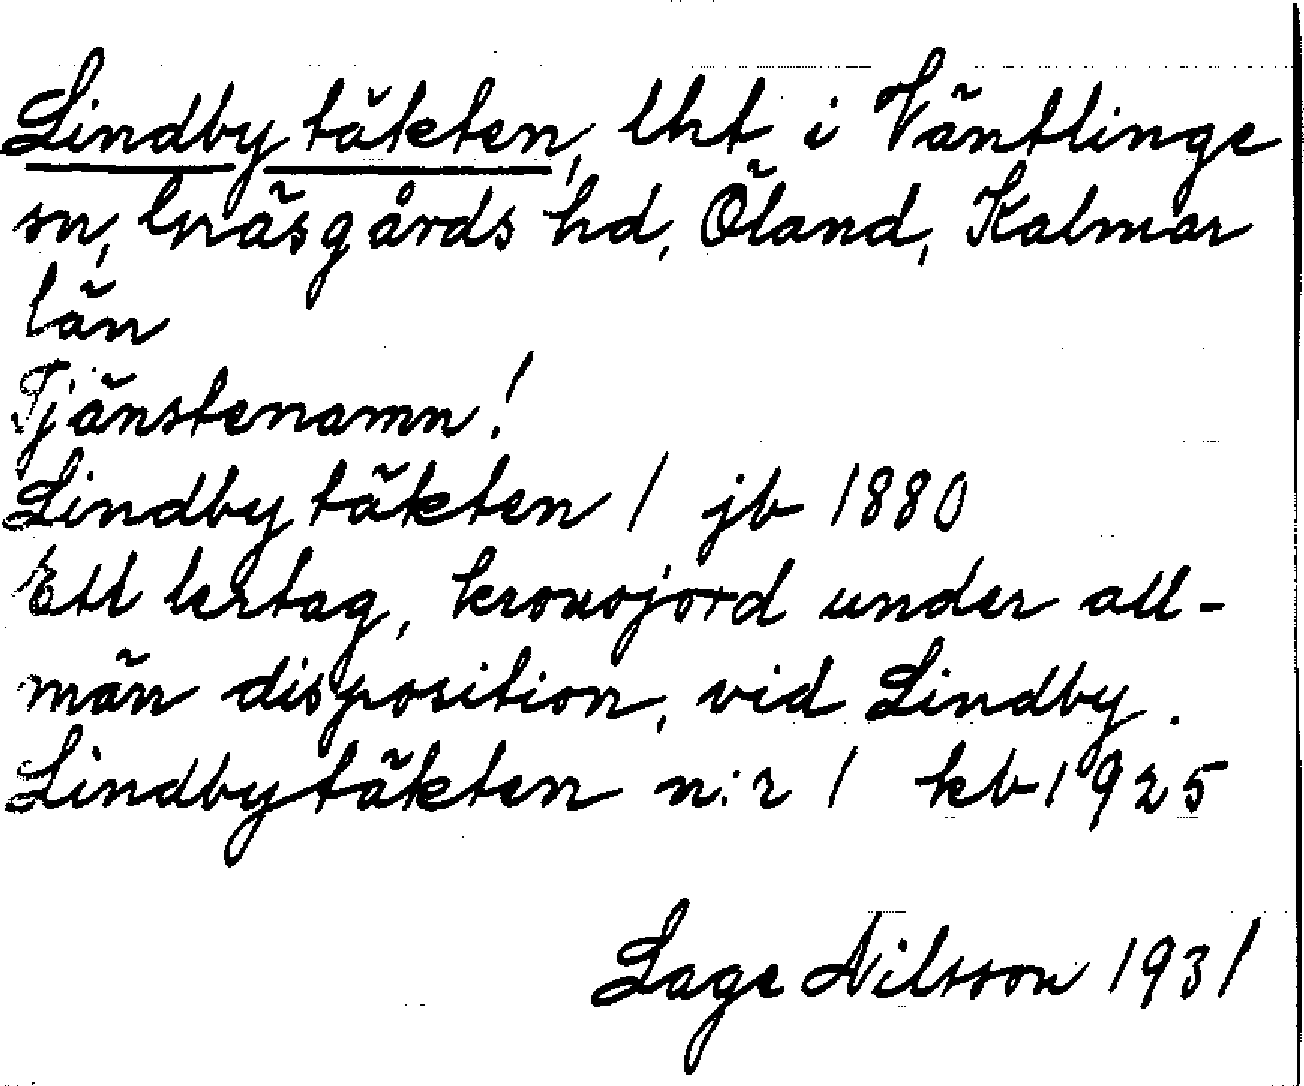 Lindbytäkten, lht i Väntlinge
sn, Gräsgårds hd, Öland, Kalmar
län
Tjänstenamn!
Lindbytäkten 1 jb 1880
Ett lertag, kronojord under all-
män disposition, vid Lindby.
Lindbytäkten n:r 1 kb 1925
Lage Nilsson 1931